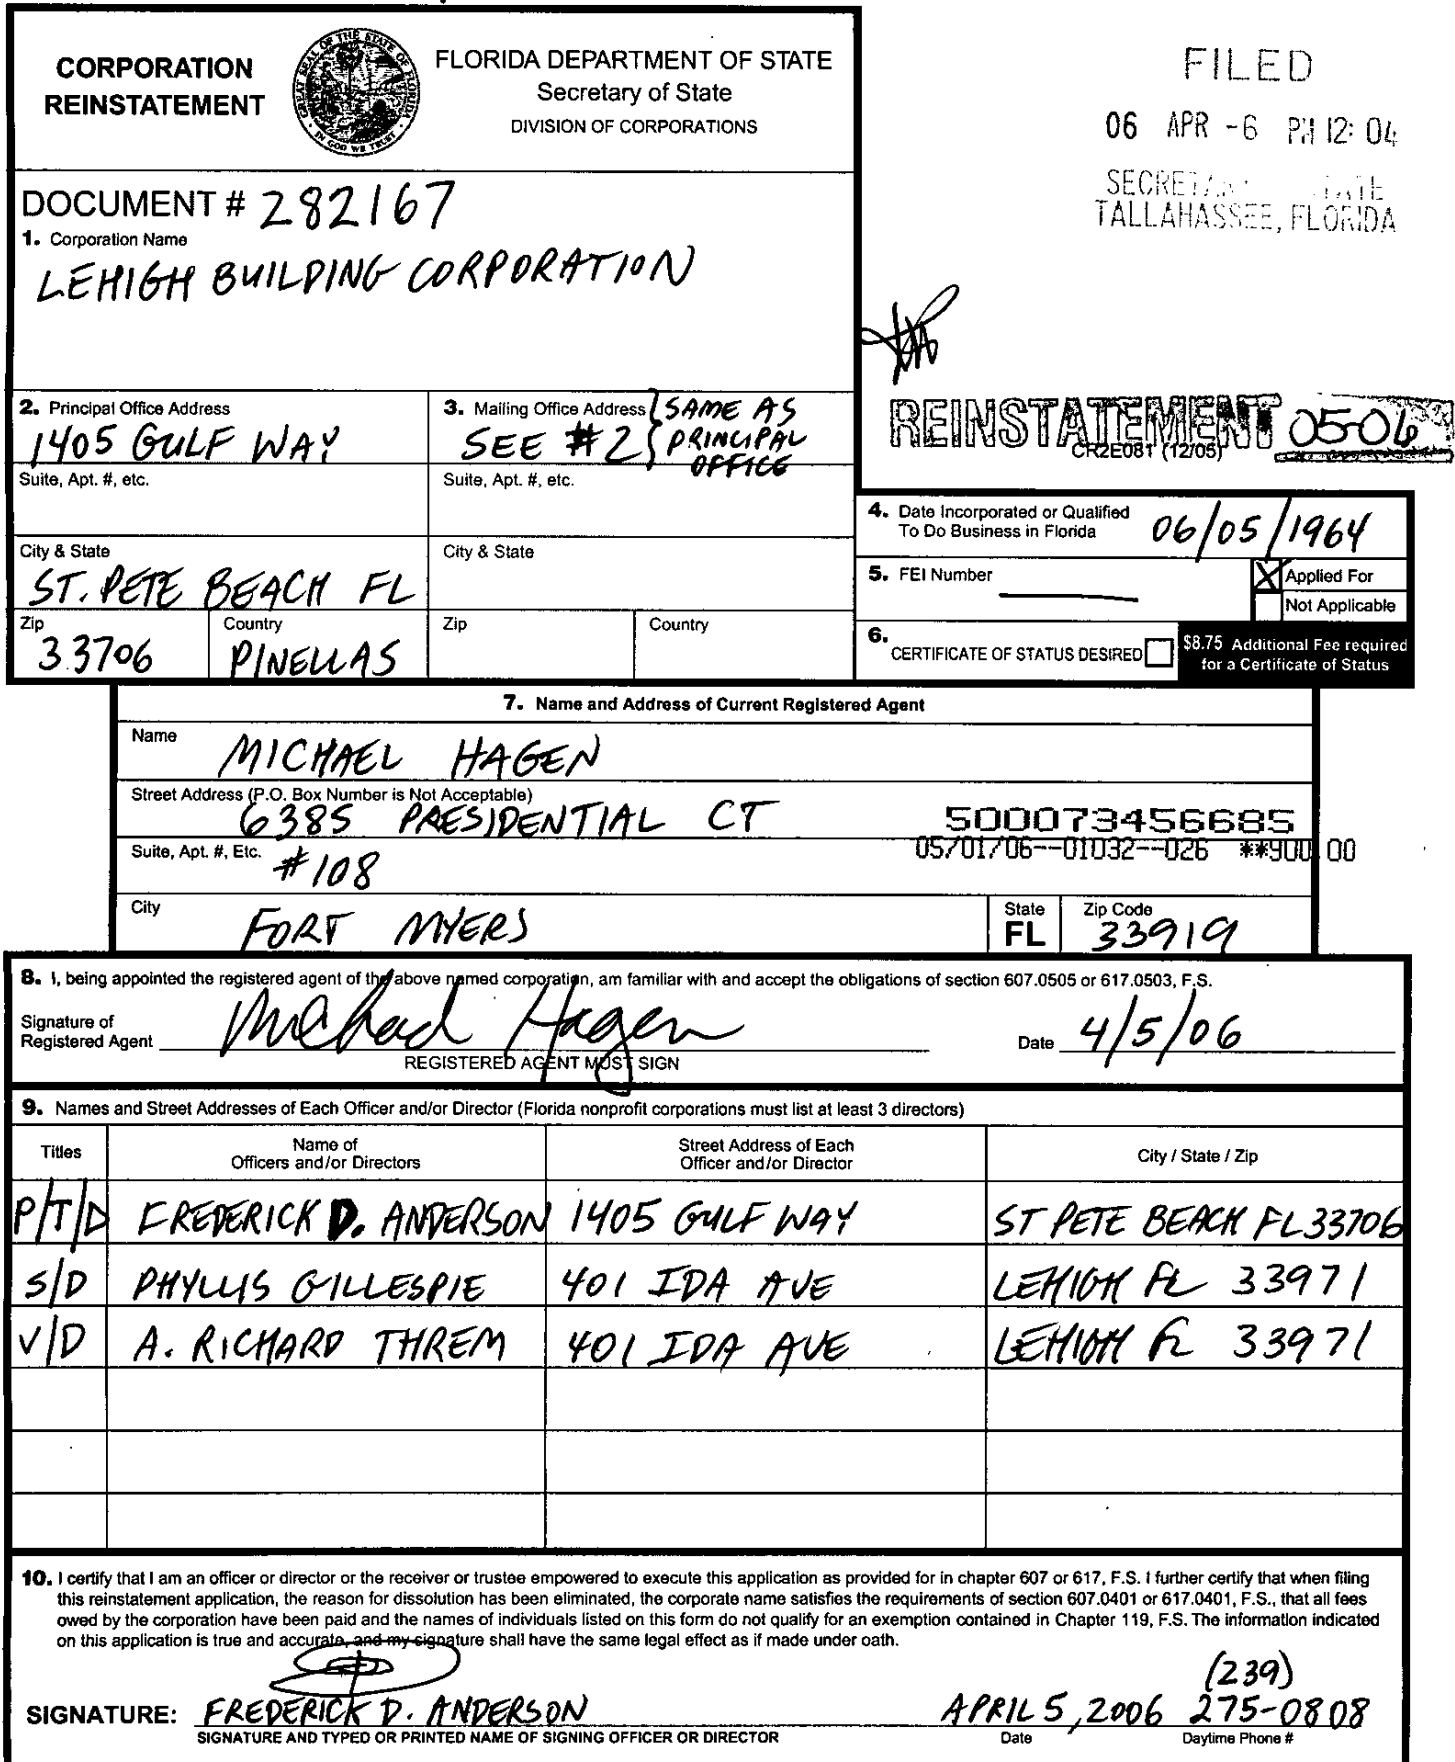 CORPORATION
REINSTATEMENT
FLORIDA DEPARTMENT OF STATE
Secretary of State
DIVISION OF CORPORATIONS
FILED
06 APR -6 PM 12: 04
TALLAHASSEE, FLORIDA
DOCUMENT # 282167
1. Corporation Name
LEHIGH BUILDING CORPORATION
REINSTATEMENT 05-06
CR2E081 (12/05)
2. Principal Office Address
1405 GULF WAY
Suite, Apt. #, etc.
City & State
ST. PETE BEACH FL
Zip
33706
Country
PINELLAS
3. Mailing Office Address
SEE #2 { SAME AS
PRINCIPAL
OFFICE
Suite, Apt. #, etc.
City & State
Zip
Country
4. Date Incorporated or Qualified
To Do Business in Florida
06/05/1964
5. FEI Number
X Applied For
Not Applicable
6. CERTIFICATE OF STATUS DESIRED
$8.75 Additional Fee required
for a Certificate of Status
7. Name and Address of Current Registered Agent
Name
MICHAEL HAGEN
Street Address (P.O. Box Number is Not Acceptable)
6385 PRESIDENTIAL CT
500073456685
05/01/06--01032--026 **900.00
Suite, Apt. #, Etc.
#108
City
FORT MYERS
State
FL
Zip Code
33919
8. I, being appointed the registered agent of the above named corporation, am familiar with and accept the obligations of section 607.0505 or 617.0503, F.S.
Signature of
Registered Agent
Michael Hagen
REGISTERED AGENT MUST SIGN
Date 4/5/06
9. Names and Street Addresses of Each Officer and/or Director (Florida nonprofit corporations must list at least 3 directors)
Titles
Name of
Officers and/or Directors
Street Address of Each
Officer and/or Director
City / State / Zip
P/T/D FREDERICK D. ANDERSON 1405 GULF WAY ST PETE BEACH FL 33706
S/D PHYLLIS GILLESPIE 401 IDA AVE LEHIGH FL 33971
V/D A. RICHARD THREM 401 IDA AVE LEHIGH FL 33971
10. I certify that I am an officer or director or the receiver or trustee empowered to execute this application as provided for in chapter 607 or 617, F.S. I further certify that when filing
this reinstatement application, the reason for dissolution has been eliminated, the corporate name satisfies the requirements of section 607.0401 or 617.0401, F.S., that all fees
owed by the corporation have been paid and the names of individuals listed on this form do not qualify for an exemption contained in Chapter 119, F.S. The information indicated
on this application is true and accurate, and my signature shall have the same legal effect as if made under oath.
SIGNATURE: FREDERICK D. ANDERSON
SIGNATURE AND TYPED OR PRINTED NAME OF SIGNING OFFICER OR DIRECTOR
APRIL 5, 2006
Date
(239)
275-0808
Daytime Phone #